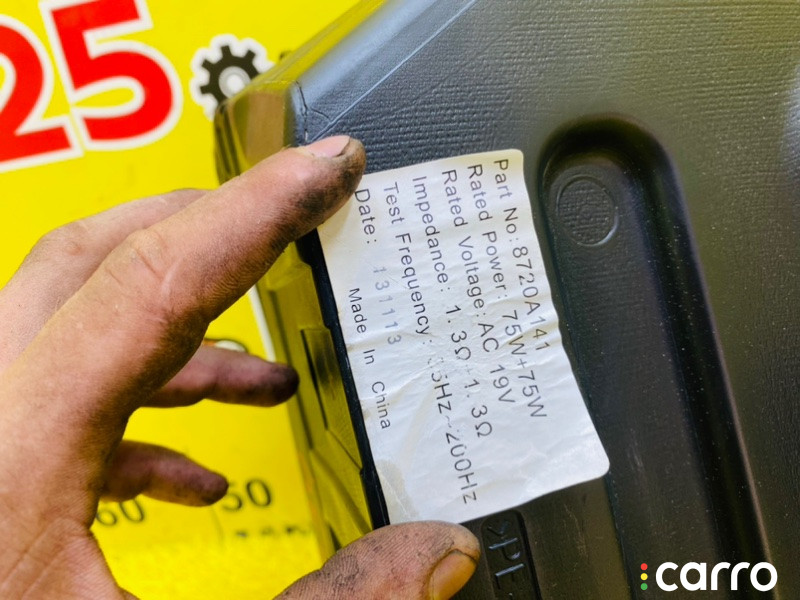 25
Part No: 8720A141
Rated Power: 75W+75W
Rated Voltage: AC 19V
Impedance: 1.3Ω+1.3Ω
Test Frequency: 35Hz~200Hz
Date: 131113
Made In China
50
60
>PE
carro